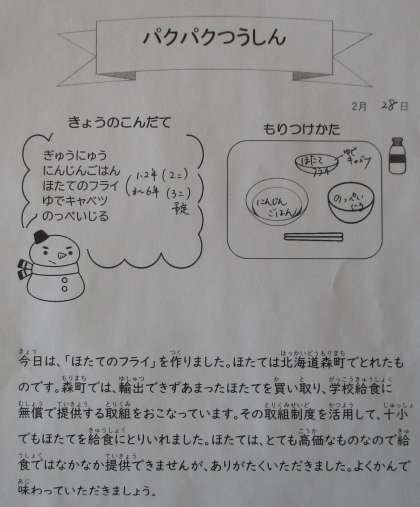 パクパクつうしん
2月 28日
きょうのこんだて
ぎゅうにゅう
にんじんごはん
ほたてのフライ
ゆでキャベツ
のっぺいじる
1.2年 (2こ)
3~6年 (3こ)
予定
もりつけかた
ほたて
フライ
ゆで
キャベツ
にんじん
ごはん
のっぺい
じる
今日は、「ほたてのフライ」を作りました。ほたては北海道森町でとれたも
のです。森町では、輸出できずあまったほたてを買い取り、学校給食に
無償で提供する取組をおこなっています。その取組制度を活用して、十小
でもほたてを給食にとりいれました。ほたては、とても高価なものなので給
食ではなかなか提供できませんが、ありがたくいただきました。よくかんで
味わっていただきましょう。